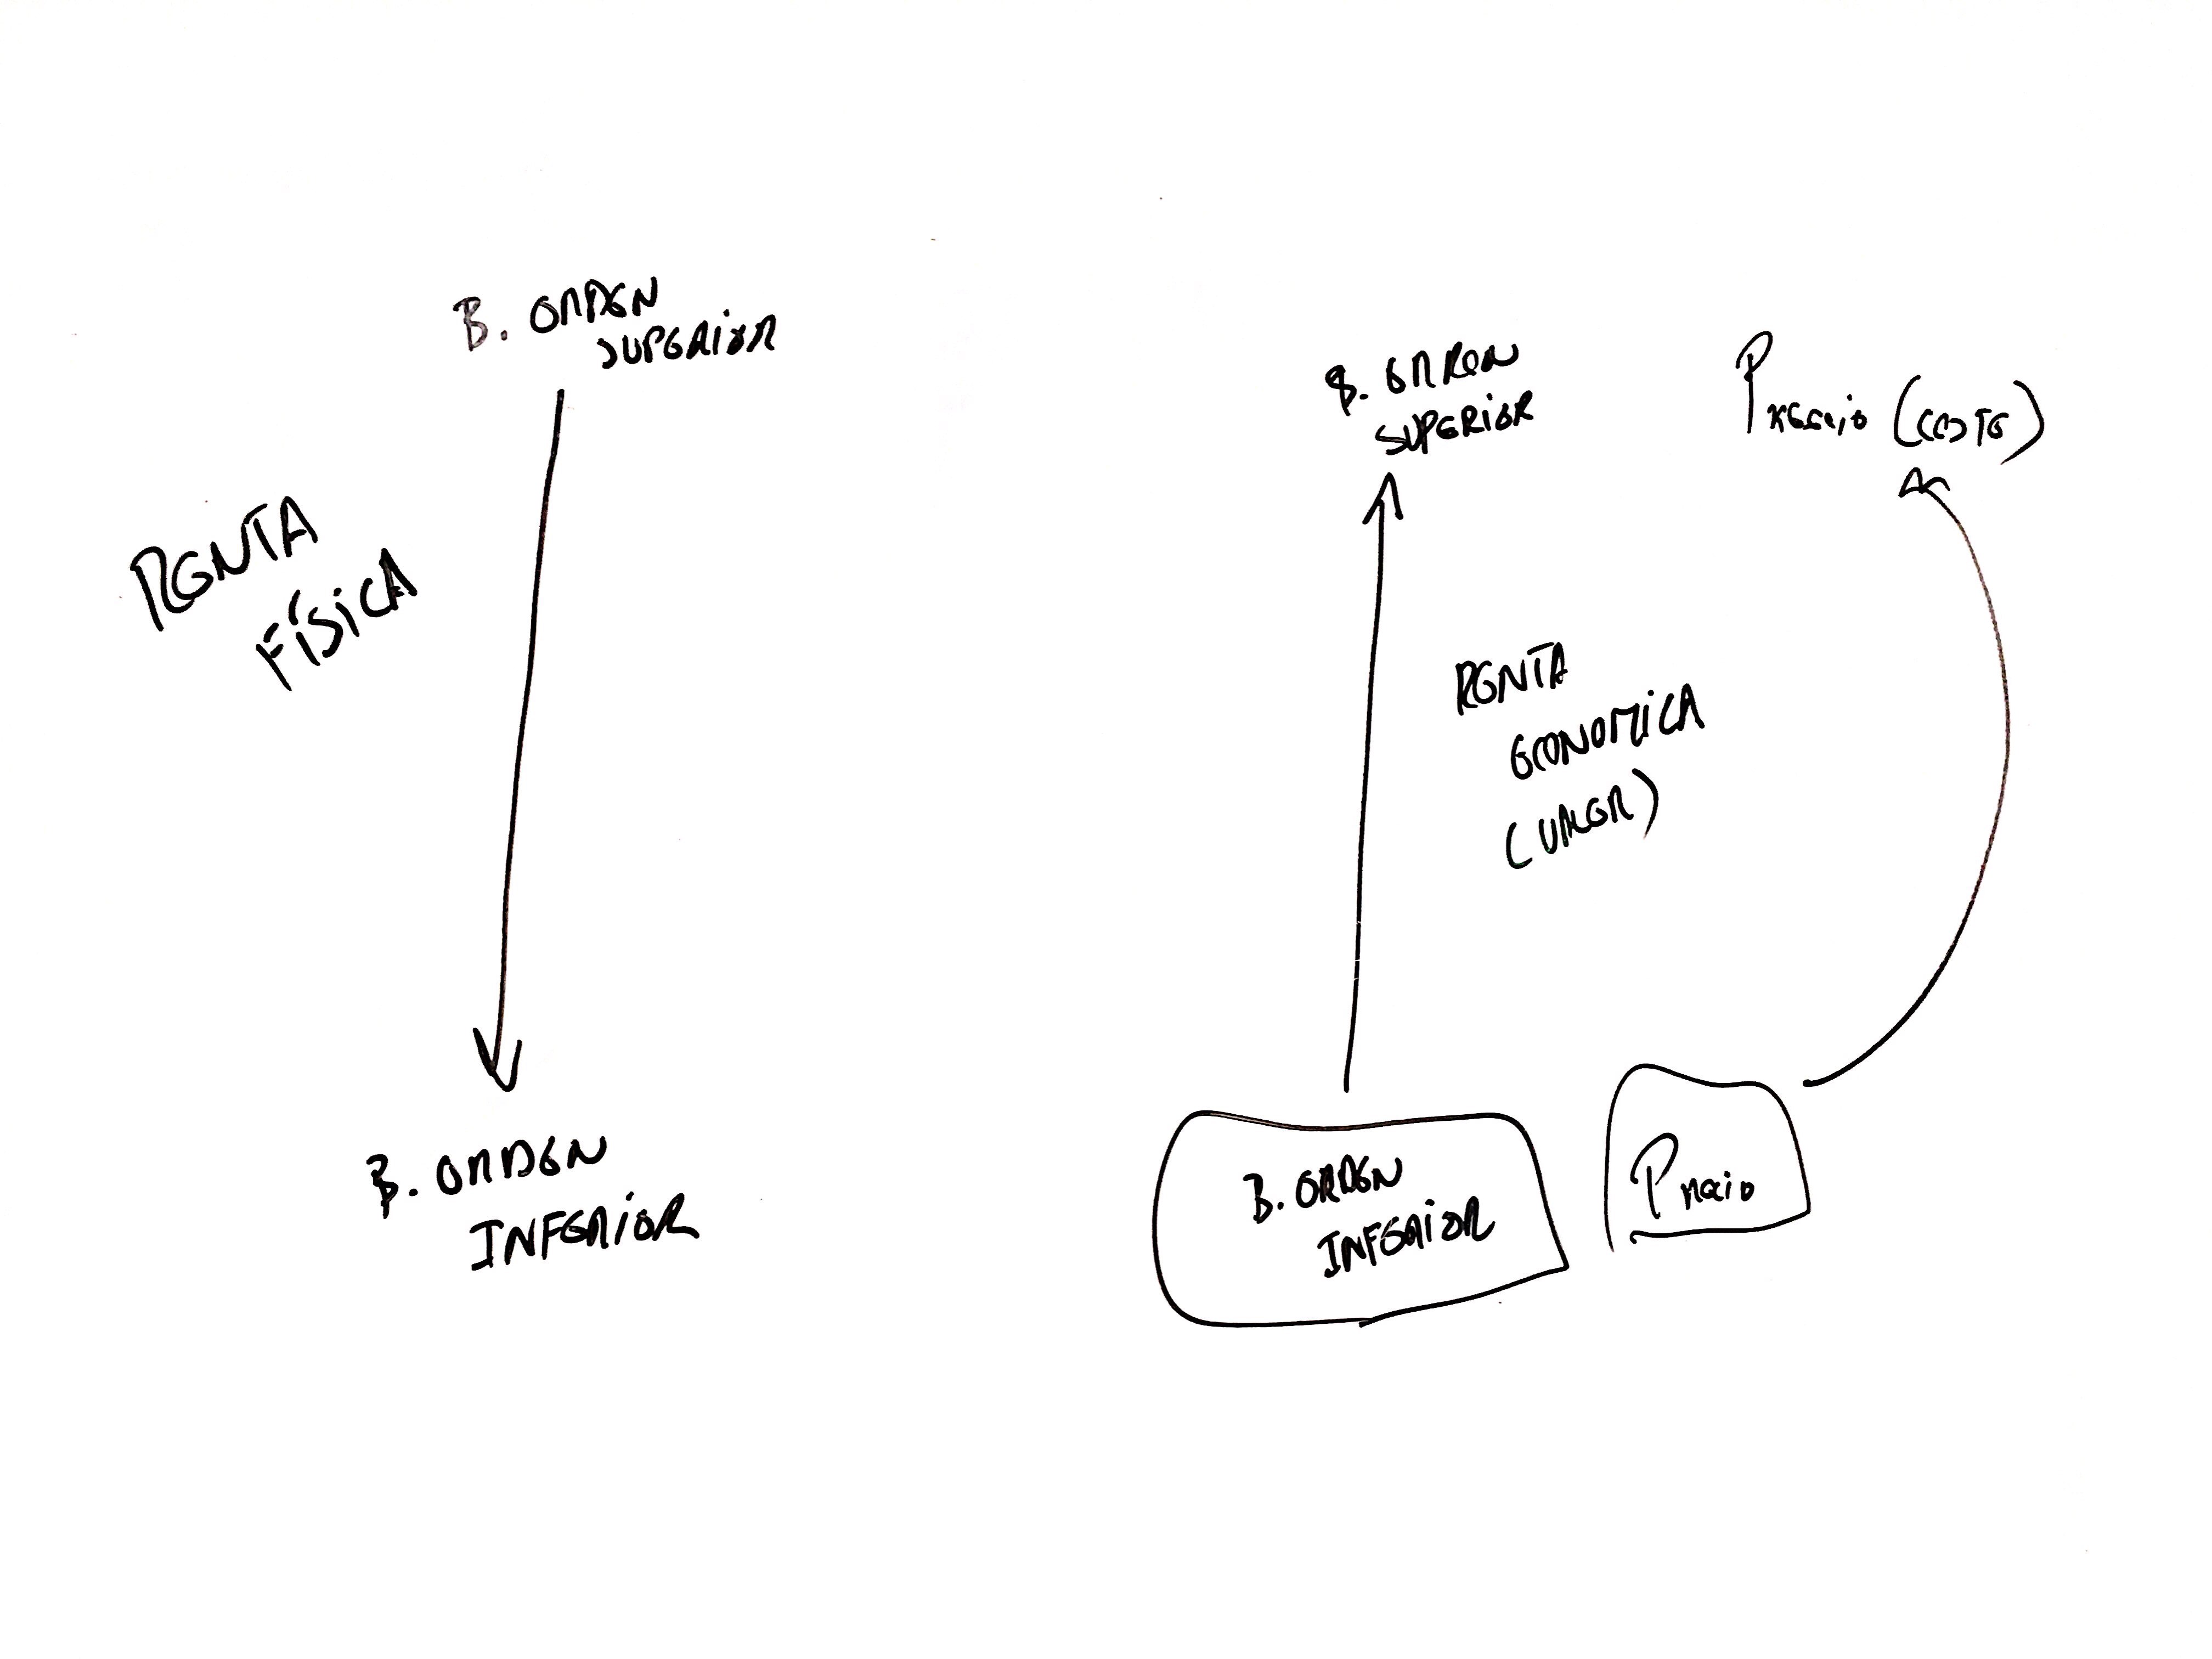 B. ORDEN
SUPERIOR
RENTA
FÍSICA
B. ORDEN
INFERIOR
B. ORDEN
SUPERIOR
Precio (COSTE)
RENTA
ECONOMICA
(VALOR)
B. ORDEN
INFERIOR
Precio